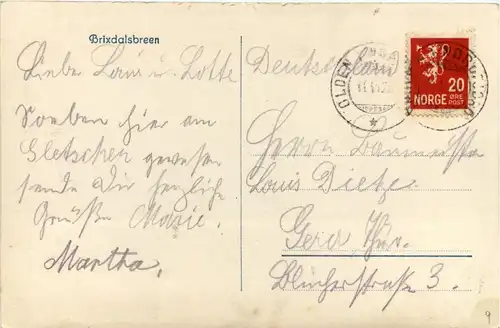 Brixdalsbreen
Liebe Louis u. Lotte
Soeben hier am
Gletscher gewesen
sende Dir herzliche
Grüße Marie.
Martha.
Deutschland
OLDEN
20
ØRE
NORGE POST
Herrn Baumeister
Louis Dietze
Gera, Thür.
Blücherstraße 3.
9